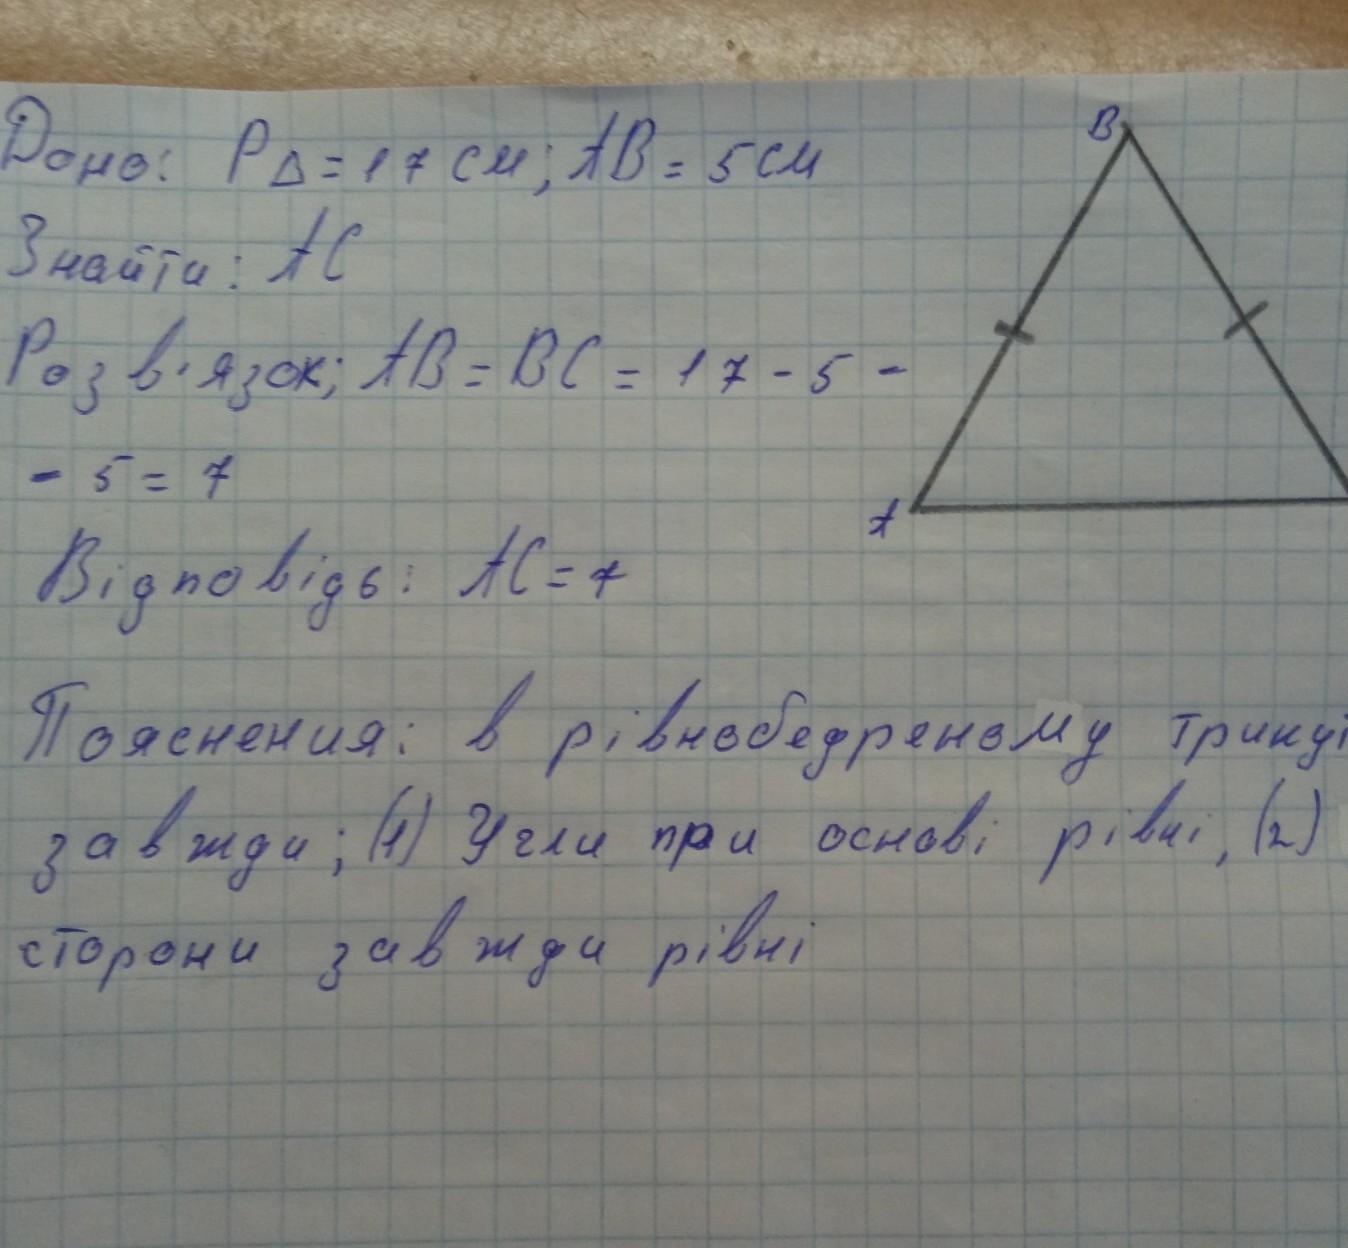 Дано: P△=17см; AB=5см
B
Знайти: AC
Розв'язок; AB=BC=17-5-
-5=7
A
Відповідь: AC=7
Пояснения: в рівнобедреному
завжди; (1) Угли при основі рівні, (2)
сторони завжди рівні